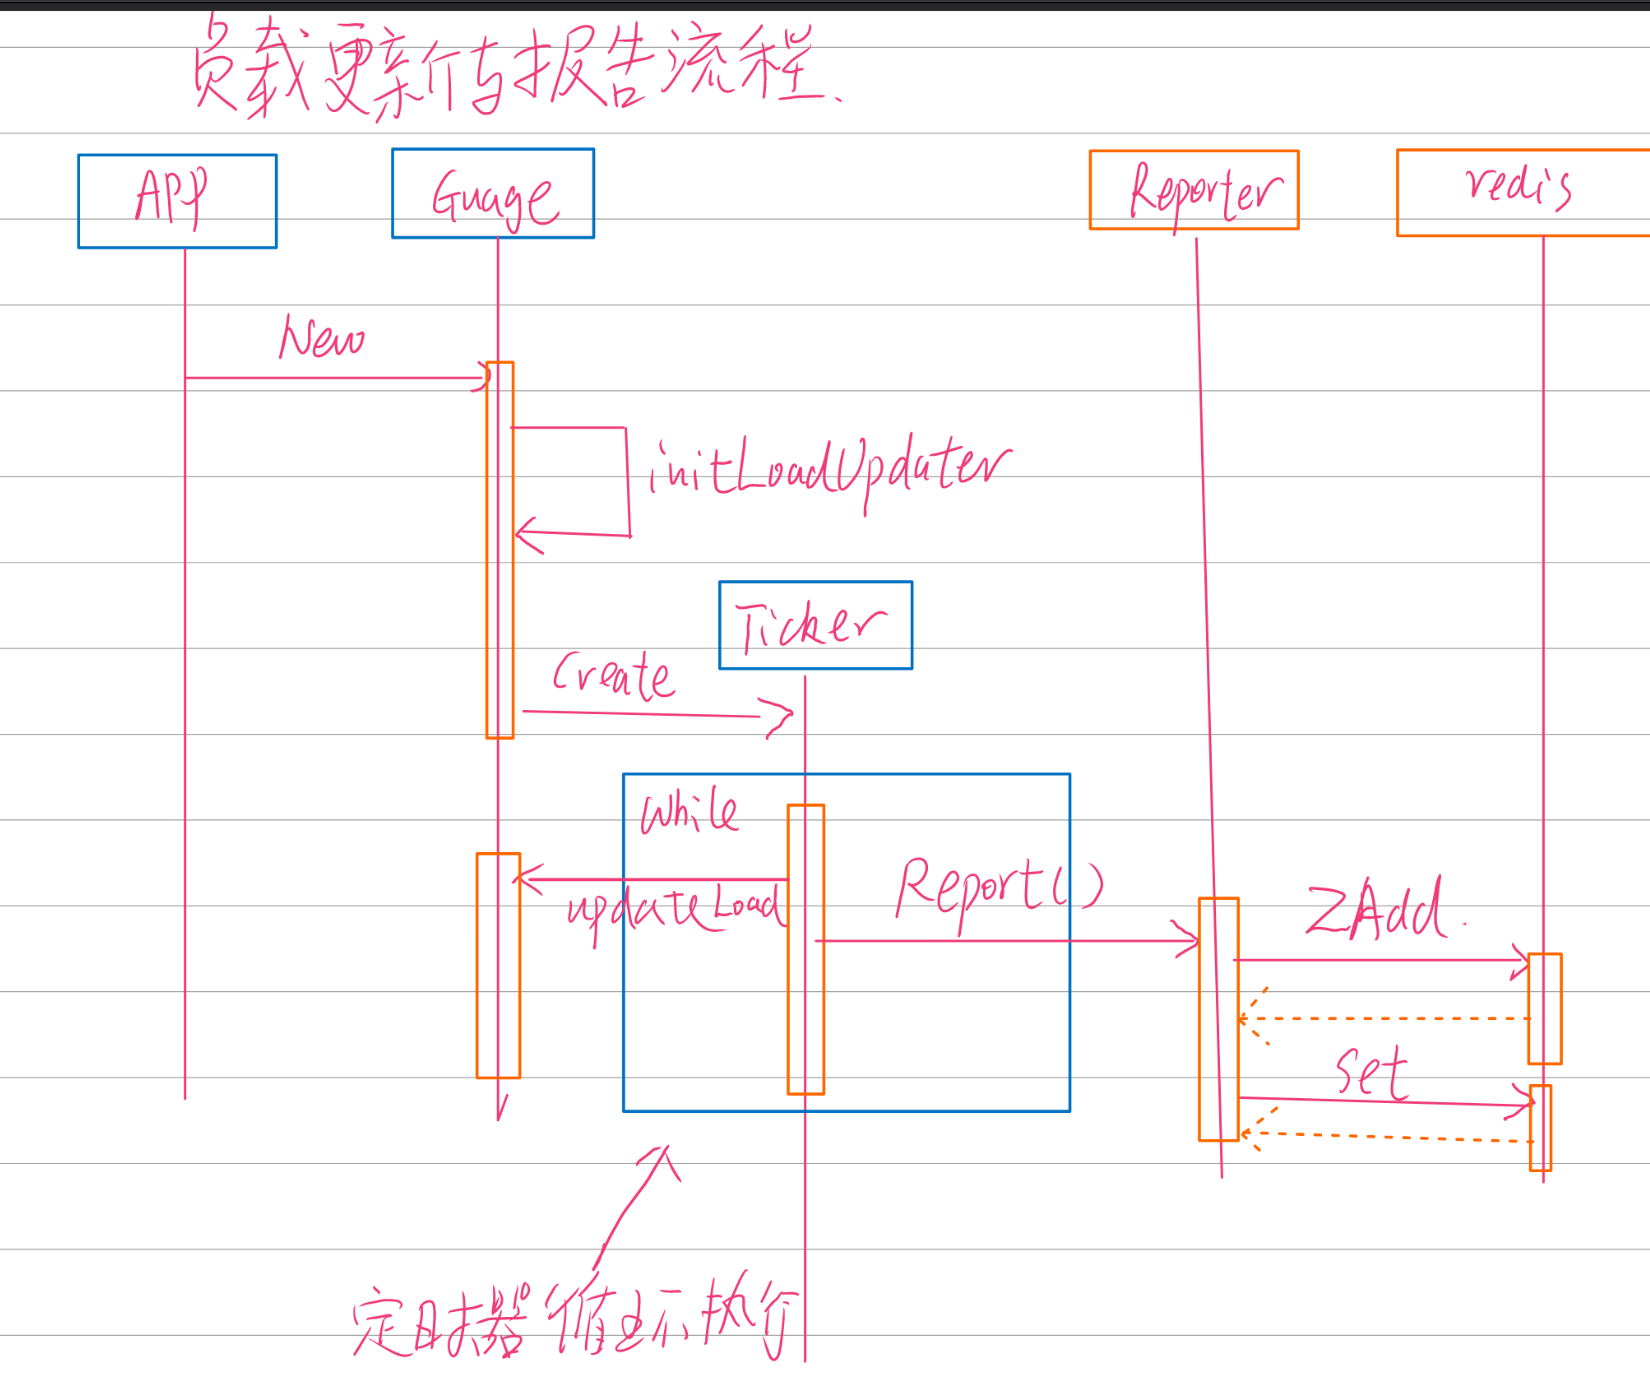 负载更新与报告流程.
App
Guage
Reporter
redis
New
initLoadUpdater
Ticker
Create
while
updateLoad
Report()
ZAdd.
set
定时器循环执行